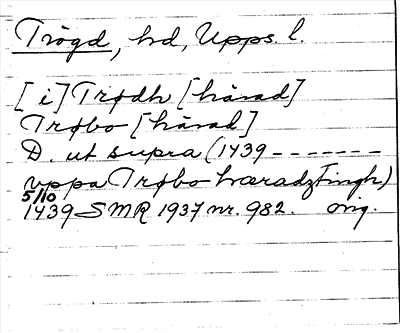 Trögd, hd, Upps. l.
[i] Trødh [härad]
Trøbo [härad]
D. ut supra (1439 -------
vppa Trøbo hæradztingh)
5/10
1439 SMR 1937 nr. 982. orig.